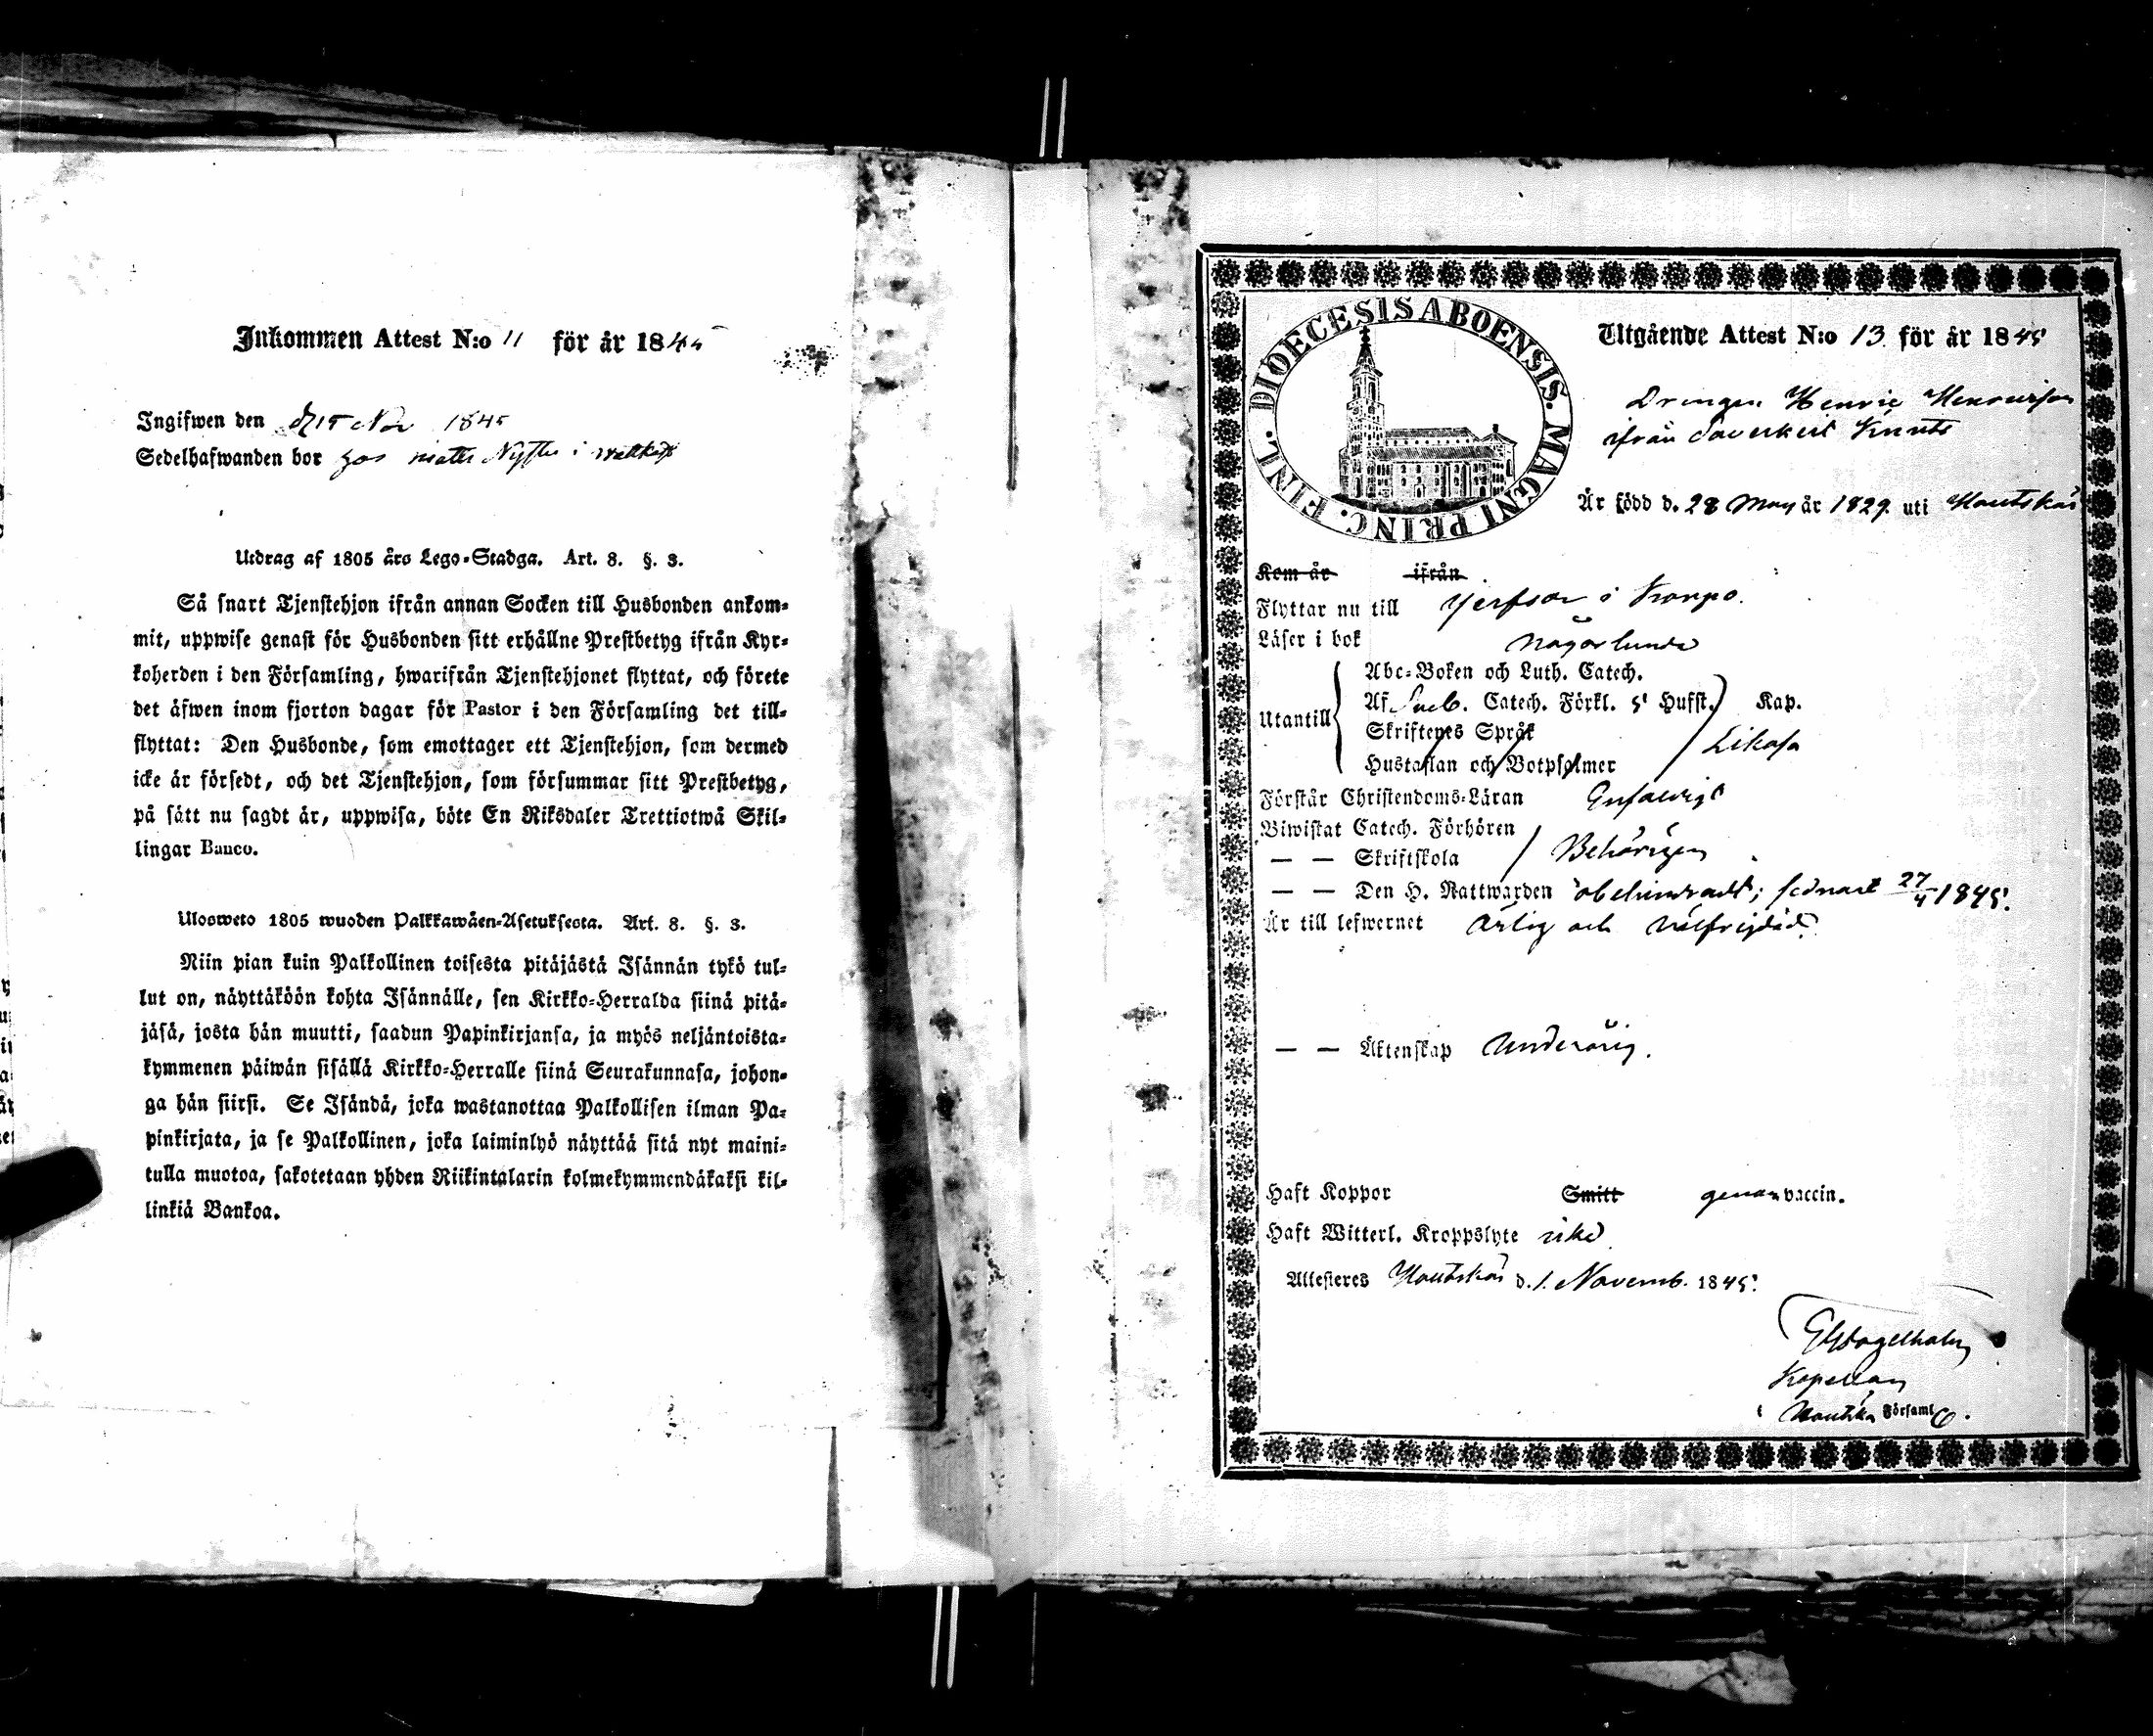 Inkommen Attest N:o 11 för år 1845
Ingifwen den d 15 Nov 1845
Sedelhafwanden bor hos i
Utdrag af 1805 års Lego-Stadga. Art. 8. §. 3.
Så snart Tjenstehjon ifrån annan Socken till Husbonden ankom-
mit, uppwise genast för Husbonden sitt erhållne Prestbetyg ifrån Kyr-
koherden i den Församling, hwarifrån Tjenstehjonet flyttat, och förete
det äfwen inom fjorton dagar för Pastor i den Församling det till-
flyttat: Den Husbonde, som emottager ett Tjenstehjon, som dermed
icke är försedt, och det Tjenstehjon, som försummar sitt Prestbetyg,
på sätt nu sagdt är, uppwisa, böte En Riksdaler Trettiotwå Skil-
lingar Banco.
Ulosweto 1805 wuoden Palkkawäen-Asetuksesta. Art. 8. §. 3.
Niin pian kuin Palkollinen toisesta pitäjästä Isännän tykö tul-
lut on, näyttäköön kohta Isännälle, sen Kirkko-Herralda siinä pitä-
jäsä, josta hän muutti, saadun Papinkirjansa, ja myös neljäntoista-
kymmenen päiwän sisällä Kirkko-Herralle siinä Seurakunnasa, johon-
ga hän siirsi. Se Isändä, joka wastanottaa Palkollisen ilman Pa-
pinkirjata, ja se Palkollinen, joka laiminlyö näyttää sitä nyt maini-
tulla muotoa, sakotetaan yhden Riikintalarin kolmekymmendäkaksi kil-
linkiä Bankoa.
DIOECESIS ABOENSIS. MAGNI PRINC. FINL.
Utgående Attest N:o 13 för år 1845
Drengen Henric Henricsson
ifrån Saverkeit Knuts
Är född d. 28 May år 1829. uti Houtskär
Kom år ifrån
Flyttar nu till Jerfsor i Korpo.
Läser i bok någorlunda
Utantill
Abc-Boken och Luth. Catech.
Af Sveb. Catech. Förkl. 5 Hufst. Kap.
Skriftenes Språk
Hustaflan och Botpsalmer Likaså
Förstår Christendoms-Läran Enfaldigt
Biwistat Catech. Förhören
— — Skriftskola Behörigen
— — Den H. Nattwarden obehindradt; sednast 27/4 1845.
Är till lefwernet ärlig och välfrejdad.
— — Äktenskap Underårig.
Haft Koppor Smitt genom vaccin.
Haft Witterl. Kroppslyte icke
Attesteres Houtskär d. 1. Novemb. 1845.
Kapellan
i Houtskär Församl.